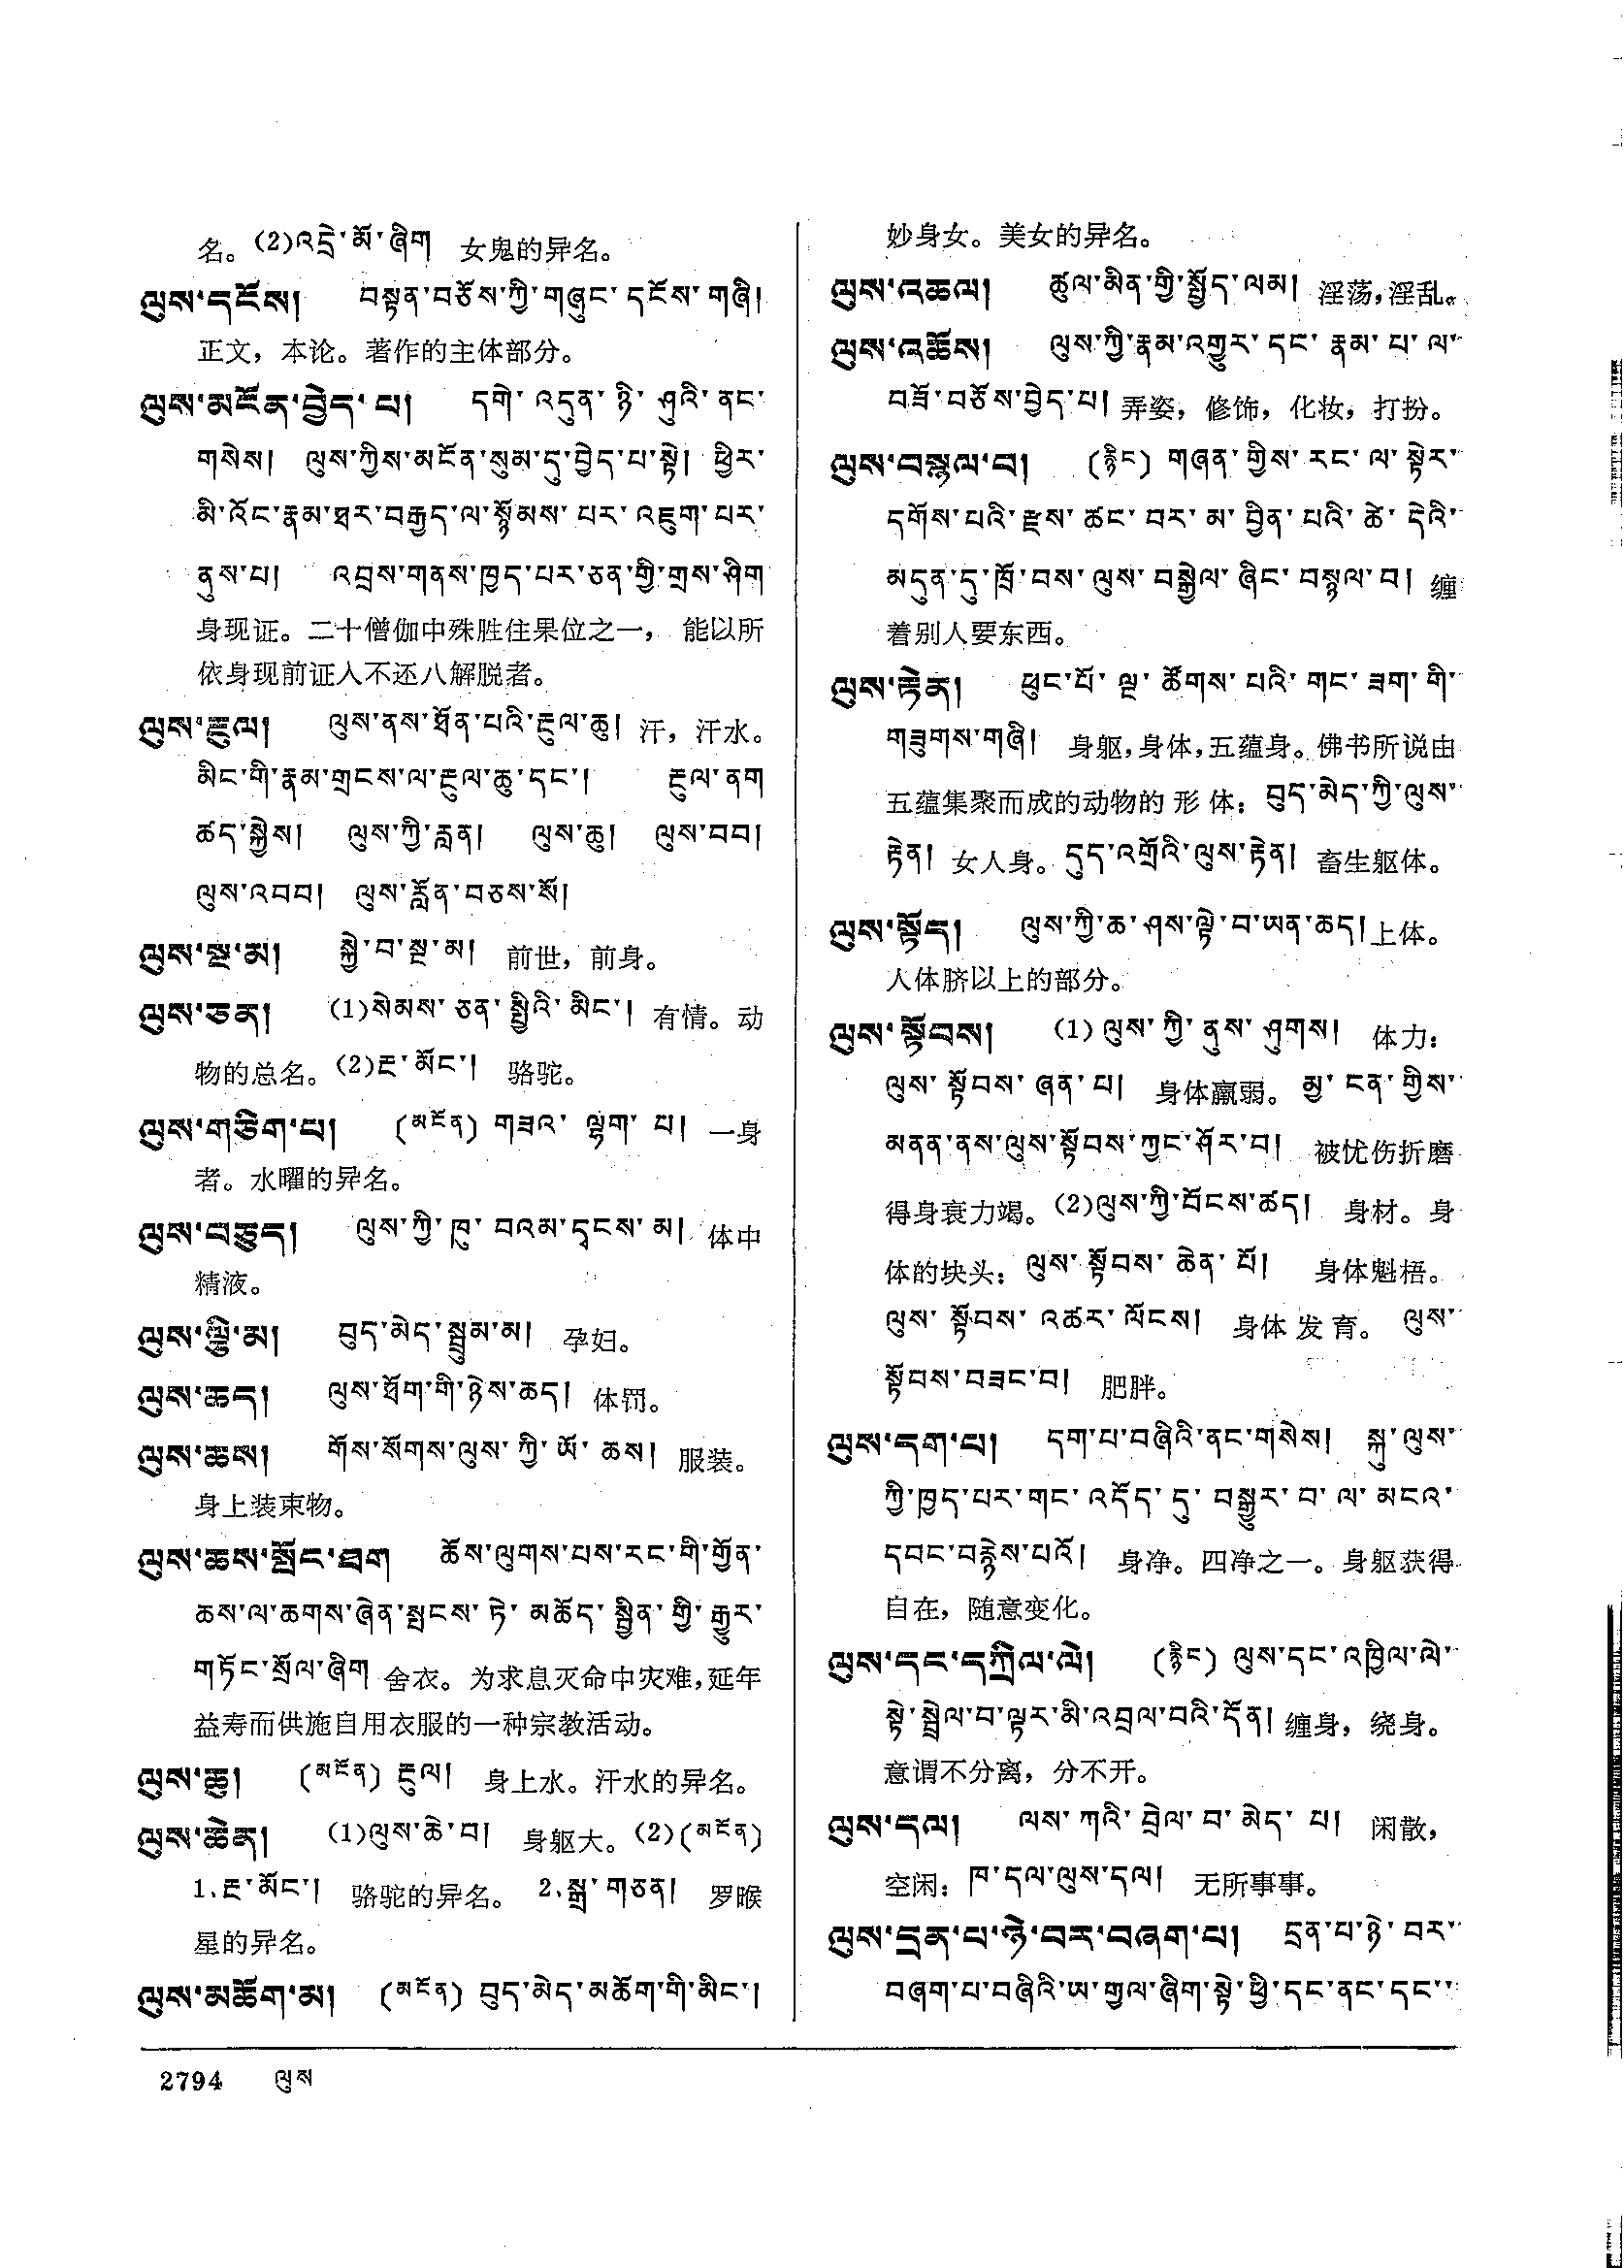 名。(2)འདྲེ་མོ་ཞིག 女鬼的异名。
ལུས་དངོས། བསྟན་བཅོས་ཀྱི་གཞུང་དངོས་གཞི།
正文，本论。著作的主体部分。
ལུས་མངོན་བྱེད་པ། དགེ་འདུན་ཉི་ཤུའི་ནང་
གསེས། ལུས་ཀྱིས་མངོན་སུམ་དུ་བྱེད་པ་སྟེ། ཕྱིར་
མི་འོང་རྣམ་ཐར་བརྒྱད་ལ་སྙོམས་པར་འཇུག་པར་
ནུས་པ། འབྲས་གནས་ཁྱད་པར་ཅན་གྱི་གྲས་ཤིག
身现证。二十僧伽中殊胜住果位之一，能以所
依身现前证入不还八解脱者。
ལུས་རྡུལ། ལུས་ནས་ཐོན་པའི་རྡུལ་ཆུ། 汗，汗水。
མིང་གི་རྣམ་གྲངས་ལ་རྡུལ་ཆུ་དང་། རྡུལ་ནག
ཚད་སྐྱེས། ལུས་ཀྱི་རླན། ལུས་ཆུ། ལུས་བབ།
ལུས་འབབ། ལུས་རློན་བཅས་སོ།
ལུས་སྔ་མ། སྐྱེ་བ་སྔ་མ། 前世，前身。
ལུས་ཅན། (1)སེམས་ཅན་སྤྱིའི་མིང་། 有情。动
物的总名。(2)རྔ་མོང་། 骆驼。
ལུས་གཅིག་པ། (མངོན) གཟའ་ལྷག་པ། 一身
者。水曜的异名。
ལུས་བཅུད། ལུས་ཀྱི་ཁུ་བའམ་དྭངས་མ། 体中
精液。
ལུས་ལྕི་མ། བུད་མེད་སྦྲུམ་མ། 孕妇。
ལུས་ཆད། ལུས་ཐོག་གི་ཉེས་ཆད། 体罚。
ལུས་ཆས། གོས་སོགས་ལུས་ཀྱི་ཡོ་ཆས། 服装。
身上装束物。
ལུས་ཆས་སྤོང་ཐག ཆོས་ལུགས་པས་རང་གི་གྱོན་
ཆས་ལ་ཆགས་ཞེན་སྤངས་ཏེ་མཆོད་སྦྱིན་གྱི་རྒྱུར་
གཏོང་སྲོལ་ཞིག 舍衣。为求息灭命中灾难，延年
益寿而供施自用衣服的一种宗教活动。
ལུས་ཆུ། (མངོན) རྡུལ། 身上水。汗水的异名。
ལུས་ཆེན། (1)ལུས་ཆེ་བ། 身躯大。(2)(མངོན)
1.རྔ་མོང་། 骆驼的异名。 2.སྒྲ་གཅན། 罗睺
星的异名。
ལུས་མཆོག་མ། (མངོན) བུད་མེད་མཆོག་གི་མིང་།
妙身女。美女的异名。
ལུས་འཆལ། ཚུལ་མིན་གྱི་སྤྱོད་ལམ། 淫荡，淫乱。
ལུས་འཆོས། ལུས་ཀྱི་རྣམ་འགྱུར་དང་རྣམ་པ་ལ་
བཟོ་བཅོས་བྱེད་པ། 弄姿，修饰，化妆，打扮。
ལུས་བསྙལ་བ། (རྙིང) གཞན་གྱིས་རང་ལ་སྟེར་
དགོས་པའི་རྫས་ཚང་བར་མ་བྱིན་པའི་ཚེ་དེའི་
མདུན་དུ་ཁྲོ་བས་ལུས་བསྒྱེལ་ཞིང་བསྙལ་བ། 缠
着别人要东西。
ལུས་རྟེན། ཕུང་པོ་ལྔ་ཚོགས་པའི་གང་ཟག་གི་
གཟུགས་གཞི། 身躯，身体，五蕴身。佛书所说由
五蕴集聚而成的动物的形体：བུད་མེད་ཀྱི་ལུས་
རྟེན། 女人身。དུད་འགྲོའི་ལུས་རྟེན། 畜生躯体。
ལུས་སྟོད། ལུས་ཀྱི་ཆ་ཤས་ལྟེ་བ་ཡན་ཆད། 上体。
人体脐以上的部分。
ལུས་སྟོབས། (1) ལུས་ཀྱི་ནུས་ཤུགས། 体力：
ལུས་སྟོབས་ཞན་པ། 身体羸弱。མྱ་ངན་གྱིས་
མནན་ནས་ལུས་སྟོབས་ཀྱང་ཤོར་བ། 被忧伤折磨
得身衰力竭。(2)ལུས་ཀྱི་བོངས་ཚད། 身材。身
体的块头：ལུས་སྟོབས་ཆེན་པོ། 身体魁梧。
ལུས་སྟོབས་འཚར་ལོངས། 身体发育。 ལུས་
སྟོབས་བཟང་བ། 肥胖。
ལུས་དག་པ། དག་པ་བཞིའི་ནང་གསེས། སྐུ་ལུས་
ཀྱི་ཁྱད་པར་གང་འདོད་དུ་བསྒྱུར་བ་ལ་མངའ་
དབང་བརྙེས་པའོ། 身净。四净之一。身躯获得
自在，随意变化。
ལུས་དང་དཀྲིལ་ལེ། (རྙིང) ལུས་དང་འཁྱིལ་ལེ་
སྟེ་སྦྲེལ་བ་ལྟར་མི་འབྲལ་བའི་དོན། 缠身，绕身。
意谓不分离，分不开。
ལུས་དལ། ལས་ཀའི་བྲེལ་བ་མེད་པ། 闲散，
空闲：ཁ་དལ་ལུས་དལ། 无所事事。
ལུས་དྲན་པ་ཉེ་བར་བཞག་པ། དྲན་པ་ཉེ་བར་
བཞག་པ་བཞིའི་ཡ་གྱལ་ཞིག་སྟེ་ཕྱི་དང་ནང་དང་
2794 ལུས